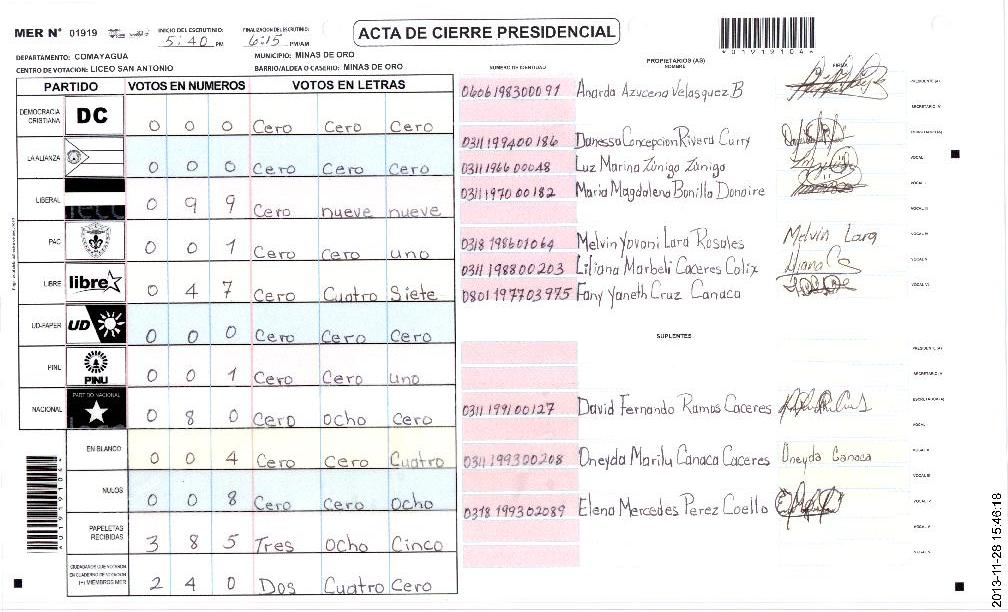 MER N° 01919 INICIO DEL ESCRUTINIO: 5:40 PM FINALIZACION DEL ESCRUTINIO: 6:15 PM/AM ACTA DE CIERRE PRESIDENCIAL
DEPARTAMENTO: COMAYAGUA MUNICIPIO: MINAS DE ORO
CENTRO DE VOTACION: LICEO SAN ANTONIO BARRIO/ALDEA O CASERIO: MINAS DE ORO
PARTIDO VOTOS EN NUMEROS VOTOS EN LETRAS
DEMOCRACIA CRISTIANA DC 0 0 0 Cero Cero Cero
LA ALIANZA 0 0 0 Cero Cero Cero
LIBERAL 0 9 9 Cero nueve nueve
PAC 0 0 1 Cero Cero uno
LIBRE libre 0 4 7 Cero Cuatro Siete
UD-FAPER UD 0 0 0 Cero Cero Cero
PINU PINU 0 0 1 Cero Cero uno
NACIONAL PARTIDO NACIONAL 0 8 0 Cero ocho Cero
EN BLANCO 0 0 4 Cero Cero Cuatro
NULOS 0 0 8 Cero Cero ocho
PAPELETAS RECIBIDAS 3 8 5 Tres ocho Cinco
CIUDADANOS QUE VOTARON EN CUADERNO DE VOTACION (+) MIEMBROS MER 2 4 0 Dos Cuatro Cero
A01919104
PROPIETARIOS (AS)
NUMERO DE IDENTIDAD NOMBRE FIRMA
0606198300091 Anarda Azucena Velasquez B PRESIDENTE (A)
SECRETARIO (A)
0311199400186 Danessa Concepcion Rivera Curry
0311196600048 Luz Marina Zúniga Zúniga VOCAL I
0311197000182 Maria Magdalena Bonilla Donaire VOCAL II
VOCAL III
0318198601064 Melvin Yovani Lara Rosales Melvin Lara VOCAL IV
0311198800203 Liliana Marbeli Caceres Calix VOCAL V
0801197703975 Fany Yaneth Cruz Canaca VOCAL VI
SUPLENTES
PRESIDENTE (A)
SECRETARIO (A)
0311199100127 David Fernando Ramos Caceres
VOCAL I
0311199300208 Oneyda Marilu Canaca Caceres Oneyda Canaca VOCAL II
VOCAL III
0318199302089 Elena Mercedes Perez Coello VOCAL IV
VOCAL V
VOCAL VI
A01919104
2013-11-28 15:46:18